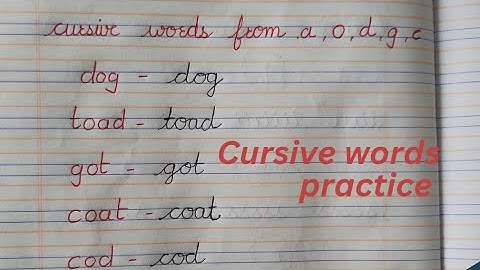 cursive words from a, o, d, g, c
dog - dog
toad - toad
got - got
coat - coat
cod - cod
Cursive words
practice